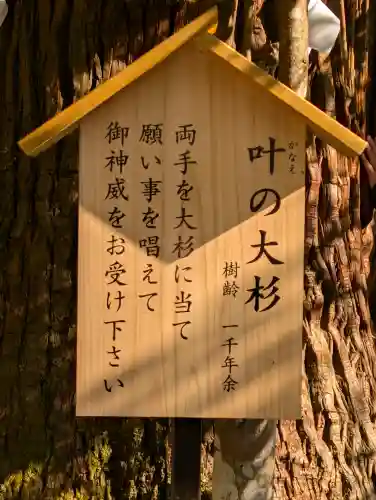 叶の大杉
かなえ
樹齢 一千年余
両手を大杉に当て
願い事を唱えて
御神威をお受け下さい